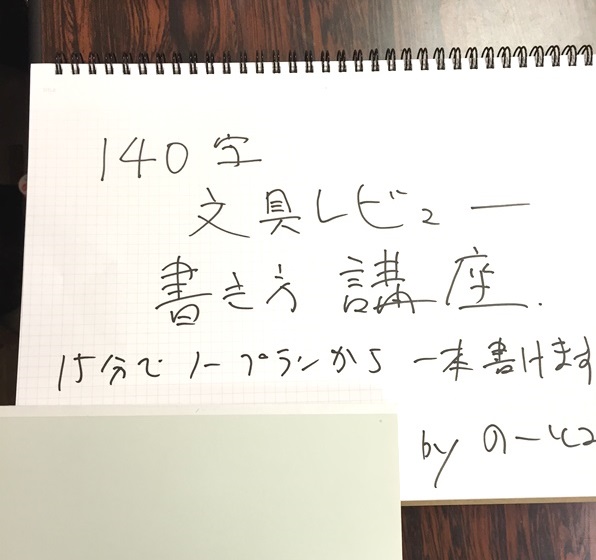 140字
文具レビュー
書き方講座.
15分で ノープランから 一本書けます
by